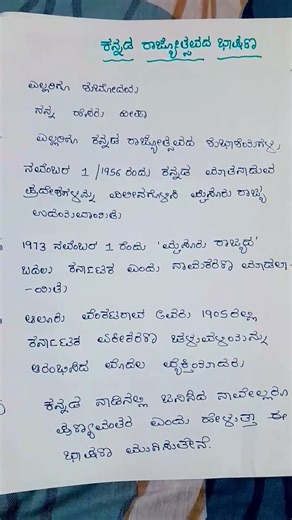 ಕನ್ನಡ ರಾಜ್ಯೋತ್ಸವದ ಭಾಷಣ
ಎಲ್ಲರಿಗೂ ಶುಭೋದಯ
ನನ್ನ ಹೆಸರು
ಎಲ್ಲರಿಗೂ ಕನ್ನಡ ರಾಜ್ಯೋತ್ಸವದ ಶುಭಾಶಯಗಳು
ನವೆಂಬರ 1 /1956 ರಂದು ಕನ್ನಡ ಮಾತನಾಡುವ
ಪ್ರದೇಶಗಳನ್ನು ವಿಲೀನಗೊಳಿಸಿ ಮೈಸೂರು ರಾಜ್ಯ
ಉದಯವಾಯಿತು
1973 ನವೆಂಬರ 1 ರಂದು 'ಮೈಸೂರು ರಾಜ್ಯದ'
ಬದಲು ಕರ್ನಾಟಕ ಎಂದು ನಾಮಕರಣ ಮಾಡಲಾ
-ಯಿತು
ಆಲೂರು ವೆಂಕಟರಾವ ಅವರು 1905 ರಲ್ಲಿ
ಕರ್ನಾಟಕ ಏಕೀಕರಣ ಚಳುವಳಿಯನ್ನು
ಆರಂಭಿಸಿದ ಮೊದಲ ವ್ಯಕ್ತಿಯಾದರು
ಕನ್ನಡ ನಾಡಿನಲ್ಲಿ ಜನಿಸಿದ ನಾವೆಲ್ಲರೂ
ಎಂದು ಹೇಳುತ್ತಾ ಈ
ಭಾಷಣ ಮುಗಿಸುತ್ತೇನೆ.